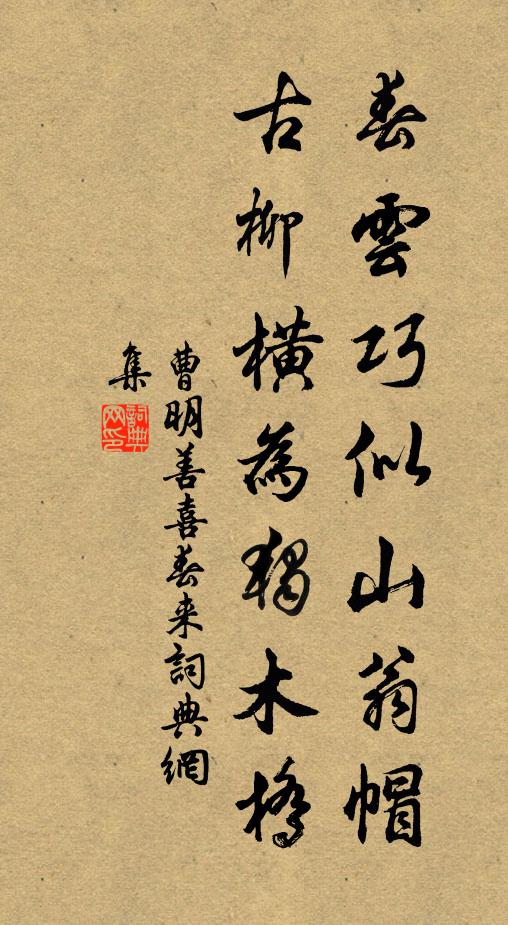 春雲巧似山翁帽
古柳橫為獨木橋
曹明善喜春来詞典網
集
詞典网印